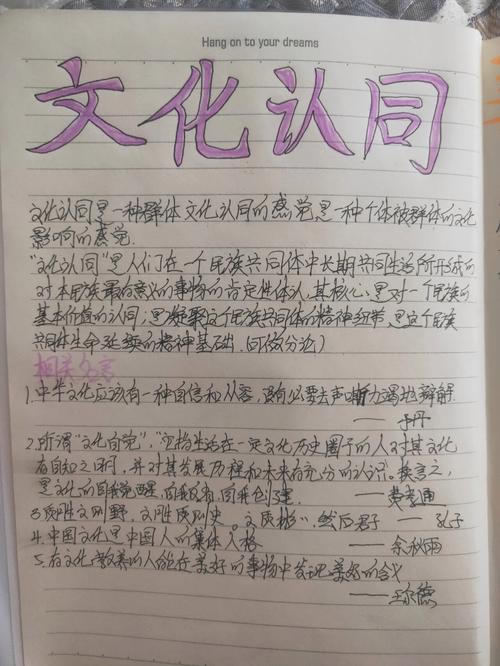 Hang on to your dreams
文化认同
文化认同是一种群体文化认同的感觉,是一种个体被群体的文化
影响的感觉.
"文化认同"是人们在一个民族共同体中长期共同生活所形成的
对本民族最有意义的事物的肯定性体认,其核心是对一个民族的
基本价值的认同;是凝聚这个民族共同体的精神纽带,是这个民族
共同体生命延续的精神基础.(可做分论)
相关名言
1.中华文化应该有一种自信和从容,没有必要去声嘶力竭地辩解.
——于丹
2.所谓"文化自觉",它指生活在一定文化历史圈子的人对其文化
有自知之明,并对其发展历程和未来有充分的认识.换言之,
是文化的自我觉醒,自我反省,自我创建. ——费孝通
3.质胜文则野,文胜质则史。文质彬彬,然后君子 —— 孔子
4.中国文化是中国人的集体人格 ——余秋雨
5.有文化教养的人能在美好的事物中发现美好的含义
——王尔德